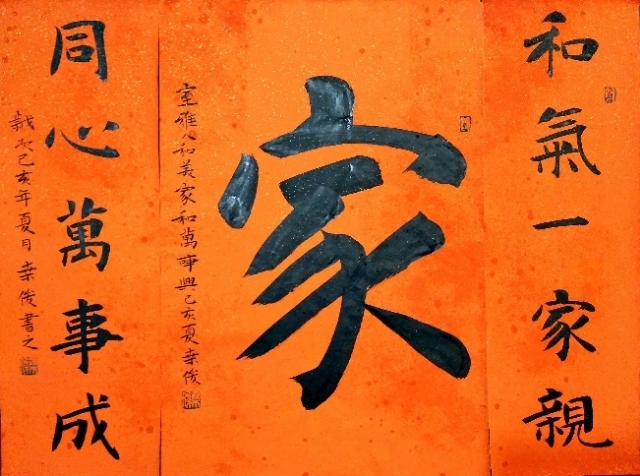 和氣一家親
家
室雅人和美家和萬事興己亥夏
同心萬事成
歲次己亥年夏月
俊書之